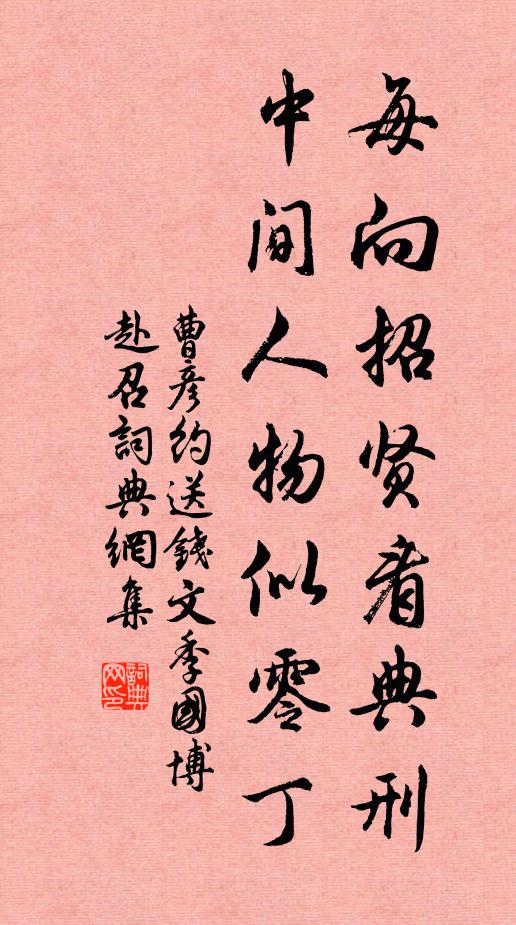 每向招贤看典刑
中间人物似零丁
曹彦约送錢文季國博
赴召詞典網集
詞典网印